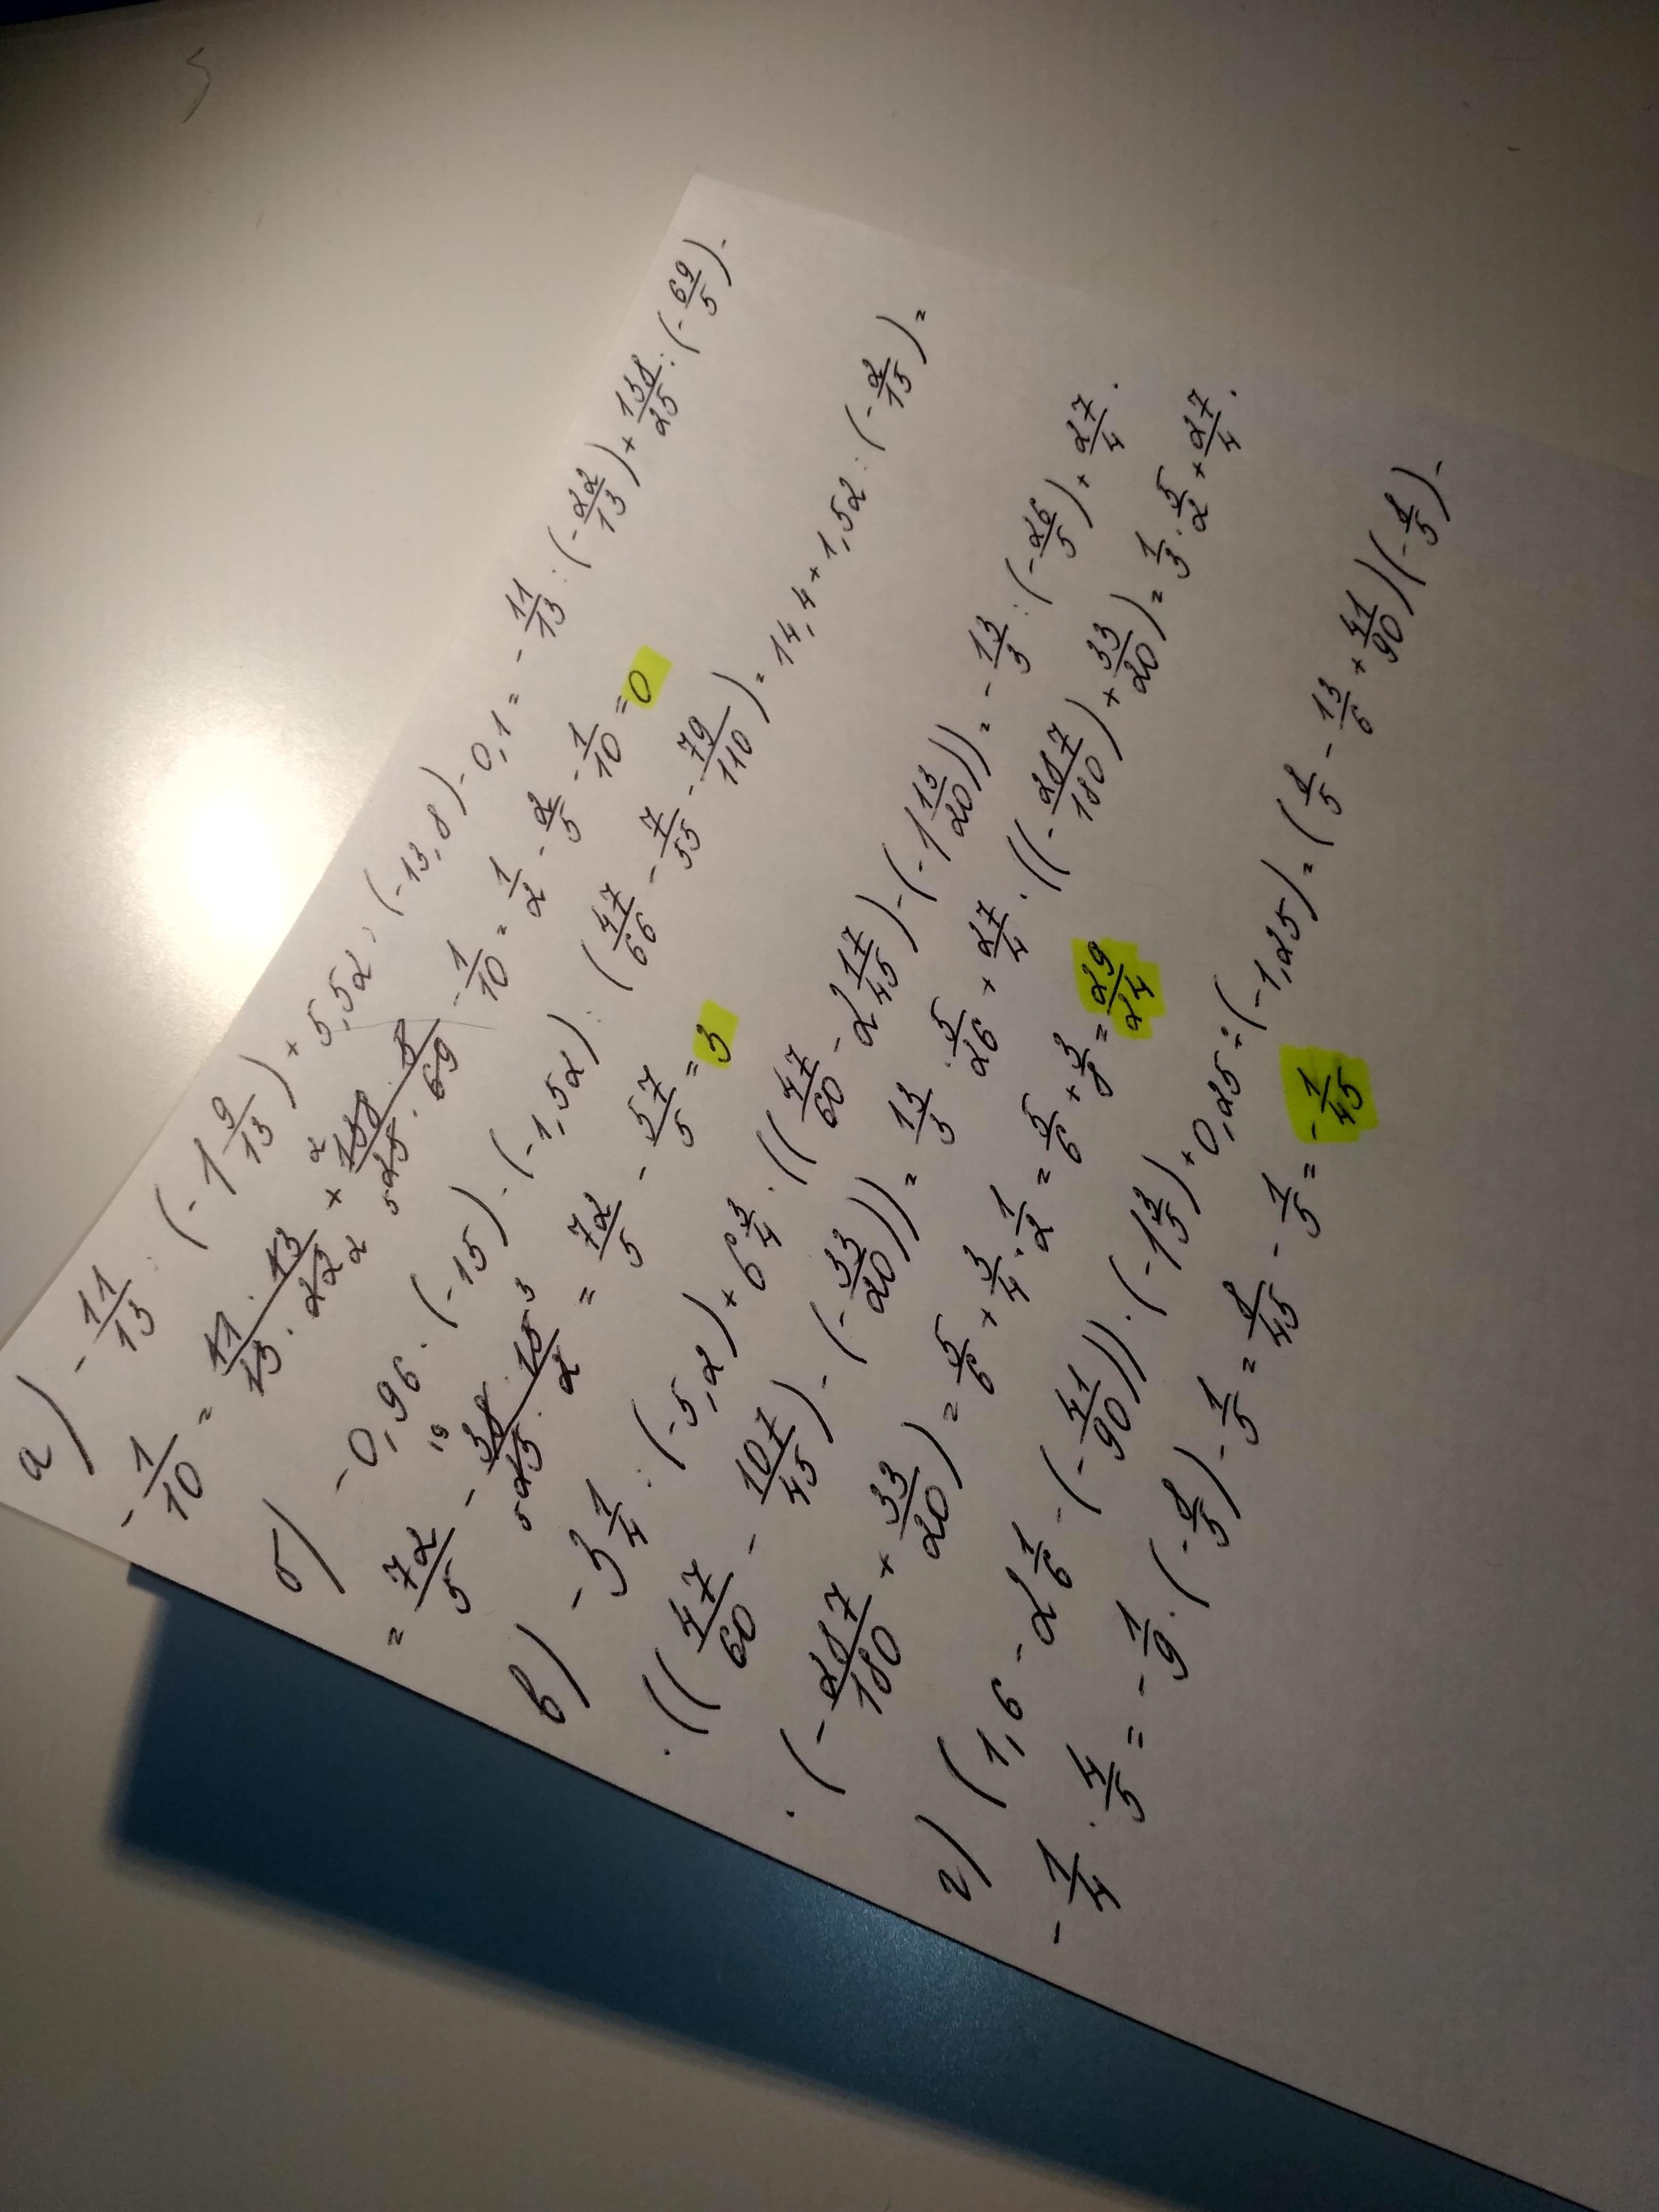 а) -11/13 : (-1 9/13) + 5,52 : (-13,8) - 0,1 = -11/13 : (-22/13) + 138/25 : (-69/5) -
- 1/10 = 11/13 · 13/22 + 138/25 · 5/69 - 1/10 = 1/2 - 2/5 - 1/10 = 0
б) -0,96 · (-15) - (-1,52) : (47/66 - 7/55 - 79/110) = 14,4 + 1,52 : (-2/15) =
= 72/5 - 38/25 · 15/2 = 72/5 - 57/5 = 3
в) -3 1/4 : (-5,2) + 6 3/4 · ((47/60 - 2 17/45) - (-1 13/20)) = -13/3 : (-26/5) + 27/4 ·
· ((47/60 - 107/45) - (-33/20)) = 13/3 · 5/26 + 27/4 · ((-287/180) + 33/20) = 1/3 · 5/2 + 27/4 ·
· (-287/180 + 33/20) = 5/6 + 3/4 · 1/2 = 5/6 + 3/8 = 29/24
г) (1,6 - 2 1/6 - (-41/90)) · (-1 3/5) + 0,25 : (-1,25) = (8/5 - 13/6 + 41/90)(-8/5) -
- 1/4 · 4/5 = -1/9 · (-8/5) - 1/5 = 8/45 - 1/5 = -1/45